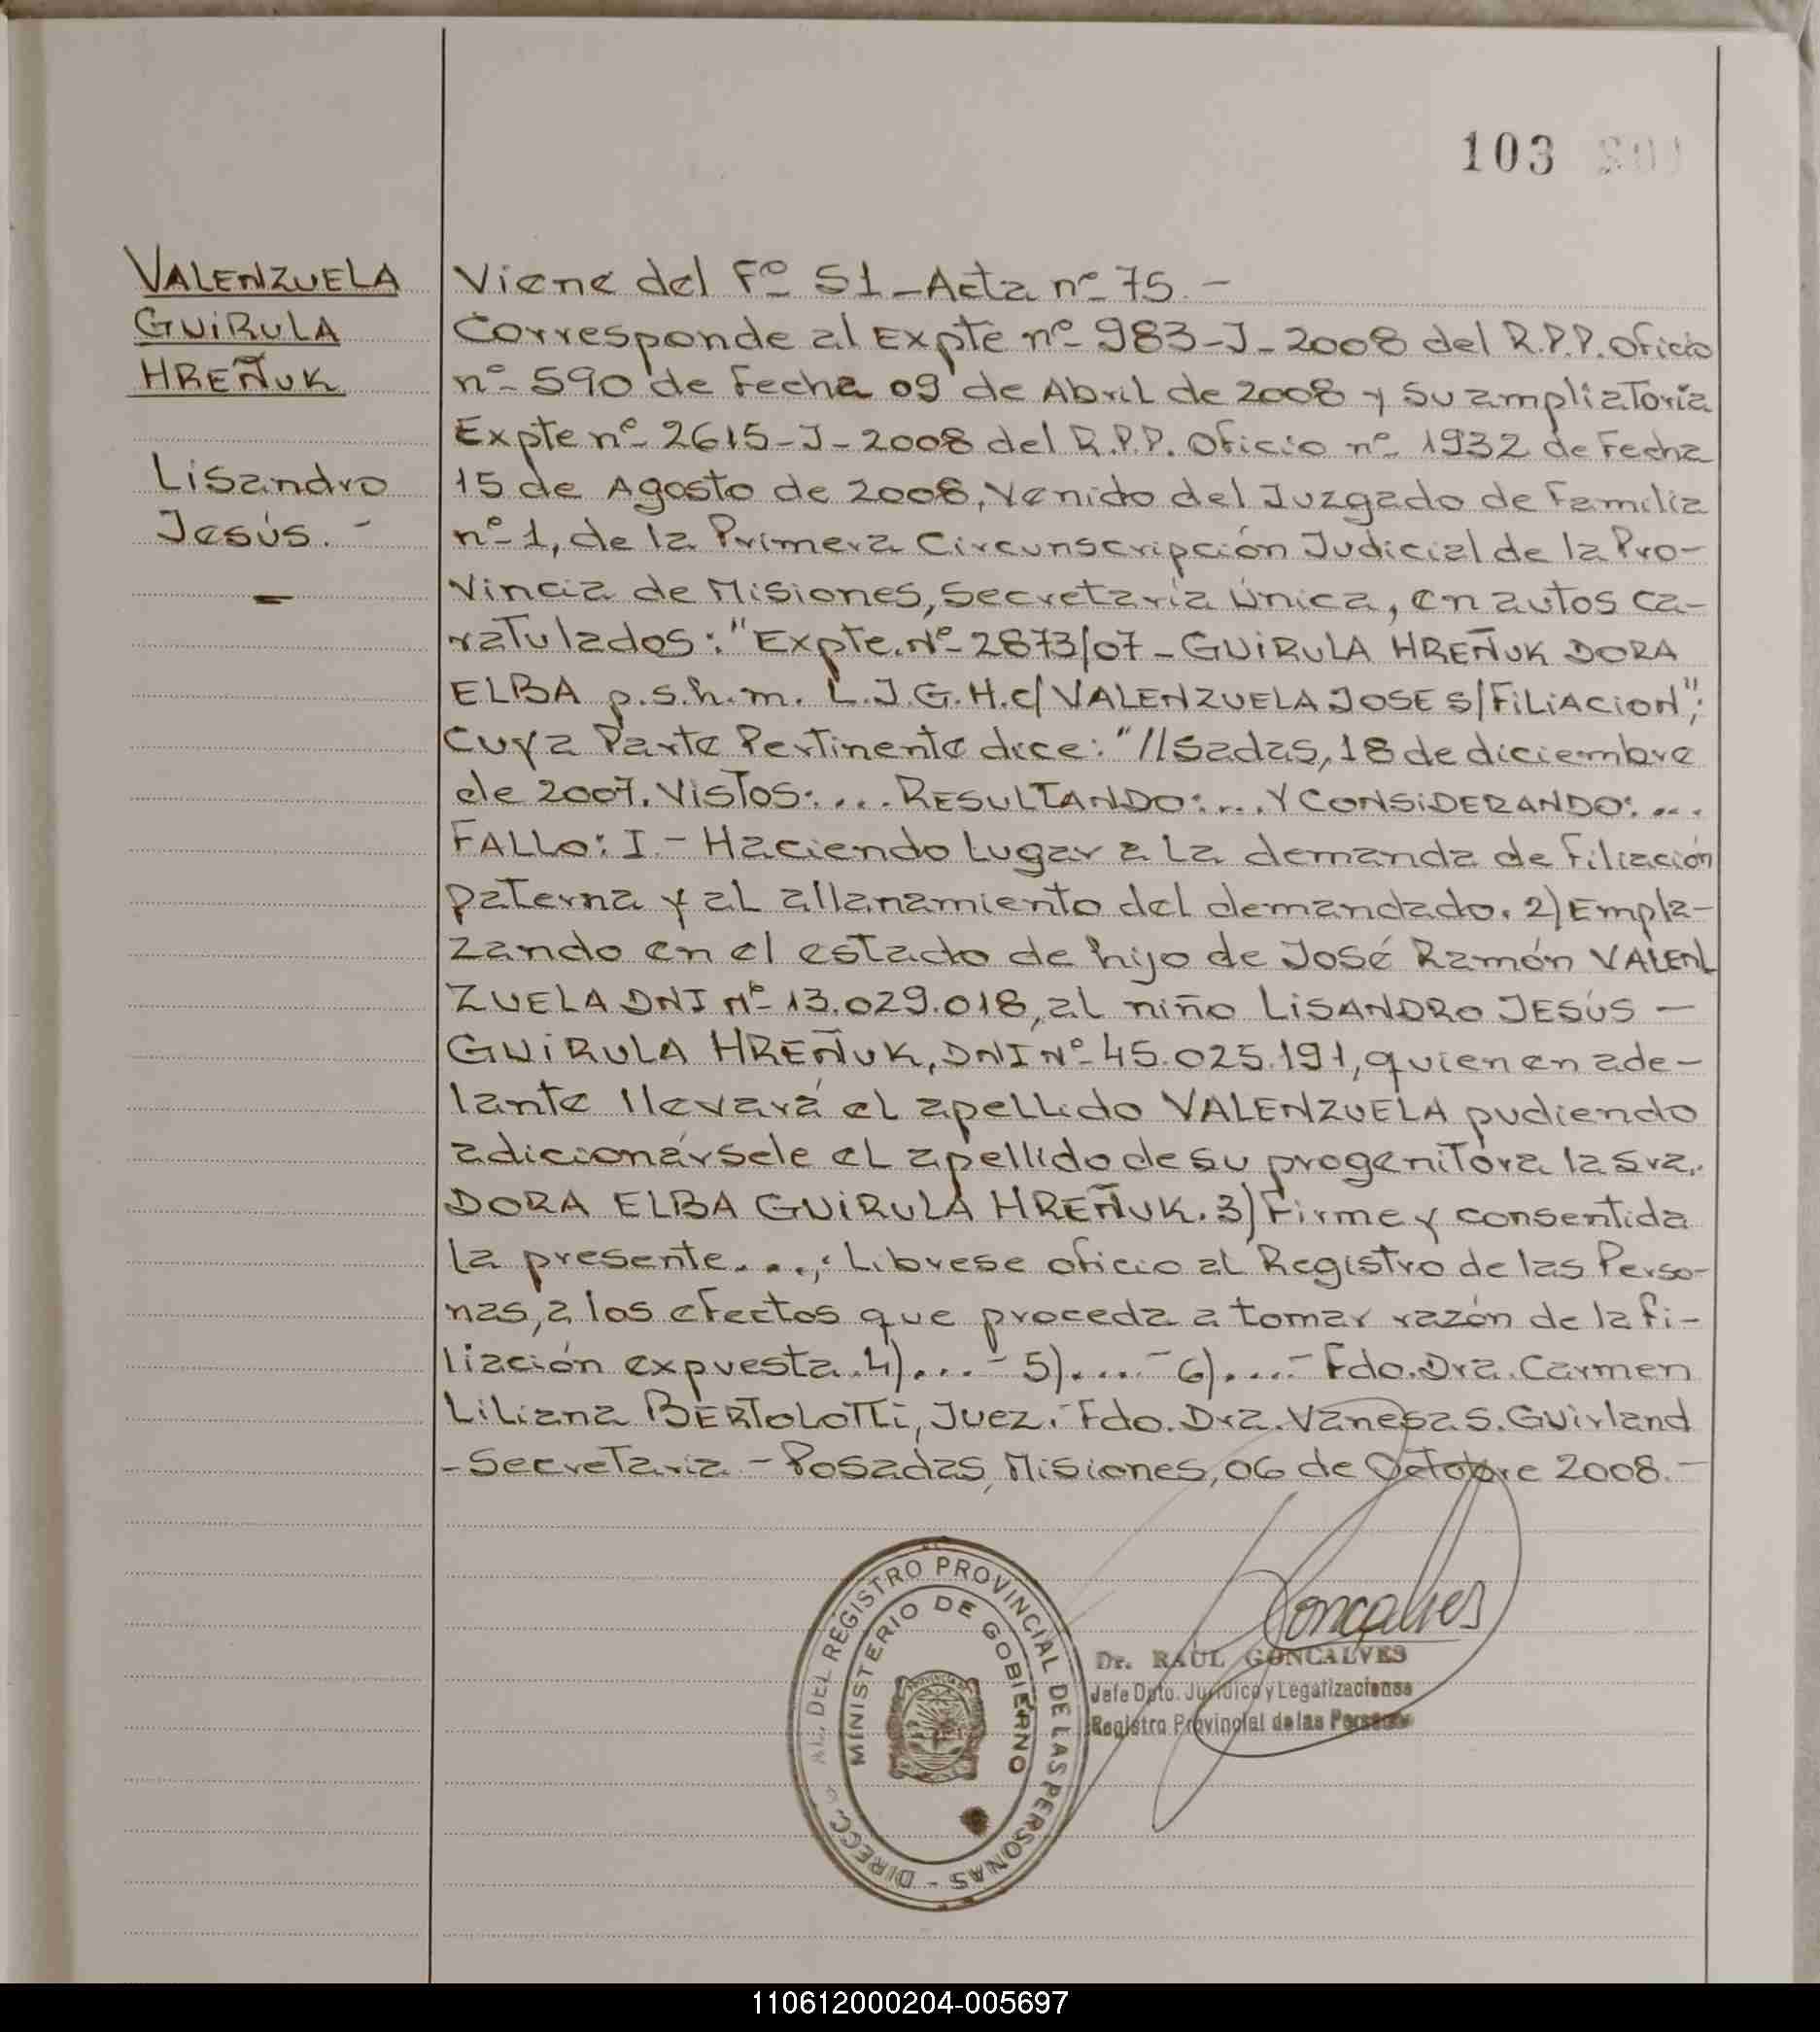 103
VALENZUELA
GUIRULA
HREÑUK
Lisandro
Jesús. -
Viene del Fº 51 - Acta nº 75. -
Corresponde al Expte nº 983-J-2008 del R.P.P. Oficio
nº 590 de Fecha 09 de Abril de 2008 y su ampliatoria
Expte nº 2615-J-2008 del R.P.P. Oficio nº 1932 de Fecha
15 de Agosto de 2008, Venido del Juzgado de Familia
nº 1, de la Primera Circunscripción Judicial de la Pro-
vincia de Misiones, Secretaría Única, en autos ca-
ratulados: "Expte. Nº 2873/07 - GUIRULA HREÑUK DORA
ELBA p.s.h.m. L.J.G.H. c/ VALENZUELA JOSE S/FILIACION";
Cuya Parte Pertinente dice: "//sadas, 18 de diciembre
de 2007. Vistos: .... RESULTANDO: ... Y CONSIDERANDO: ....
FALLO: I. - Haciendo Lugar a La demanda de Filiación
paterna y al allanamiento del demandado. 2) Empla-
zando en el estado de hijo de José Ramón VALEN
ZUELA DNI Nº 13.029.018, al niño LISANDRO JESÚS -
GUIRULA HREÑUK, DNI Nº 45.025.191, quien en ade-
lante llevará el apellido VALENZUELA pudiendo
adicionársele el apellido de su progenitora la Sra.
DORA ELBA GUIRULA HREÑUK. 3) Firme y consentida
la presente....,. Librese oficio al Registro de las Perso-
nas, a los efectos que proceda a tomar razón de la fi-
liación expuesta. 4).... - 5).... - 6).... - Fdo. Dra. Carmen
Liliana BERTOLOTTi, Juez. - Fdo. Dra. Vanesa S. Guirland
- Secretaria - Posadas, Misiones, 06 de Octubre 2008. -
DEL REGISTRO PROVINCIAL DE LAS PERSONAS - DIRECC
MINISTERIO DE GOBIERNO
Goncalves
Dr. RAUL GONCALVES
Jefe Dpto. Jurídico y Legalizaciones
Registro Provincial de las Personas
110612000204-005697